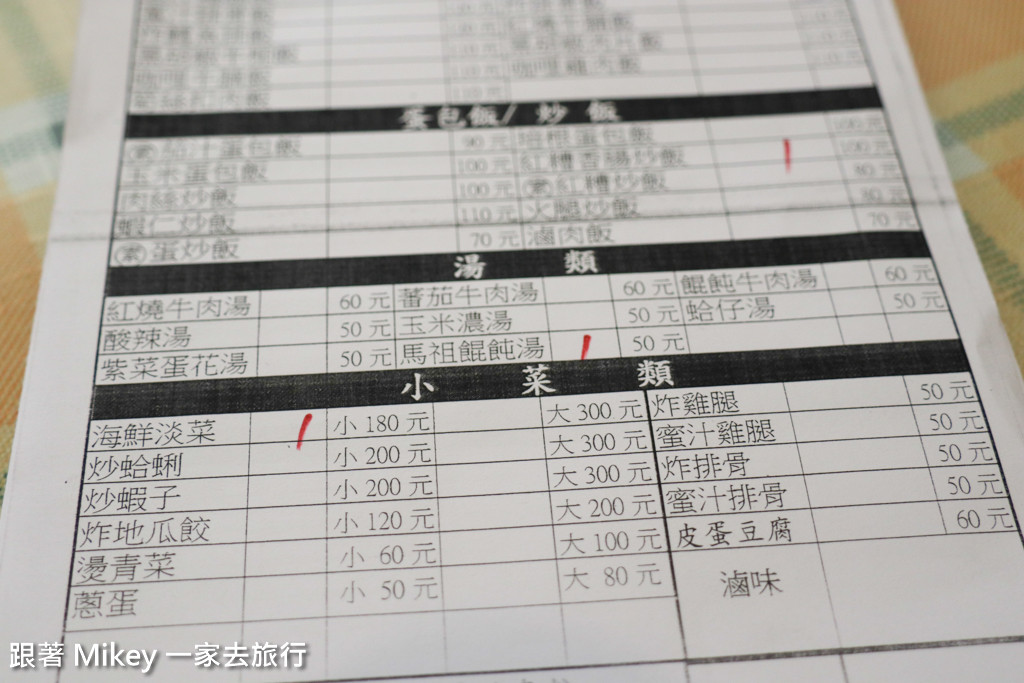 蛋包飯/ 炒 飯
㊕茄汁蛋包飯 90元 培根蛋包飯 100元
玉米蛋包飯 100元 紅糟香腸炒飯 100元
肉絲炒飯 100元 ㊕紅糟炒飯 80元
蝦仁炒飯 110元 火腿炒飯 80元
㊕蛋炒飯 70元 滷肉飯 70元
湯 類
紅燒牛肉湯 60元 蕃茄牛肉湯 60元 餛飩牛肉湯 60元
酸辣湯 50元 玉米濃湯 50元 蛤仔湯 50元
紫菜蛋花湯 50元 馬祖餛飩湯 50元
小 菜 類
海鮮淡菜 小 180元 大 300元 炸雞腿 50元
炒蛤蜊 小 200元 大 300元 蜜汁雞腿 50元
炒蝦子 小 200元 大 300元 炸排骨 50元
炸地瓜餃 小 120元 大 200元 蜜汁排骨 50元
燙青菜 小 60元 大 100元 皮蛋豆腐 60元
蔥蛋 小 50元 大 80元 滷味
跟著 Mikey 一家去旅行